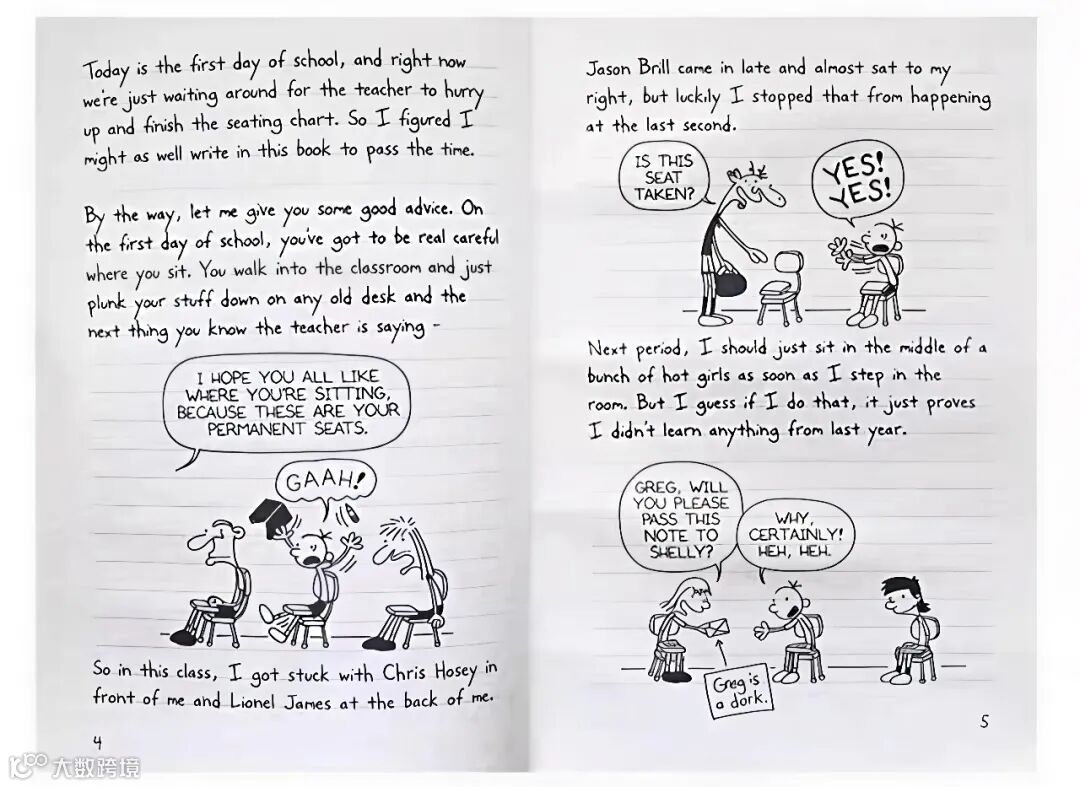 Today is the first day of school, and right now
we're just waiting around for the teacher to hurry
up and finish the seating chart. So I figured I
might as well write in this book to pass the time.
By the way, let me give you some good advice. On
the first day of school, you've got to be real careful
where you sit. You walk into the classroom and just
plunk your stuff down on any old desk and the
next thing you know the teacher is saying -
I HOPE YOU ALL LIKE
WHERE YOU'RE SITTING,
BECAUSE THESE ARE YOUR
PERMANENT SEATS.
GAAH!
So in this class, I got stuck with Chris Hosey in
front of me and Lionel James at the back of me.
4
Jason Brill came in late and almost sat to my
right, but luckily I stopped that from happening
at the last second.
IS THIS
SEAT
TAKEN?
YES!
YES!
Next period, I should just sit in the middle of a
bunch of hot girls as soon as I step in the
room. But I guess if I do that, it just proves
I didn't learn anything from last year.
GREG, WILL
YOU PLEASE
PASS THIS
NOTE TO
SHELLY?
WHY,
CERTAINLY!
HEH, HEH.
Greg is
a dork.
5
大数跨境